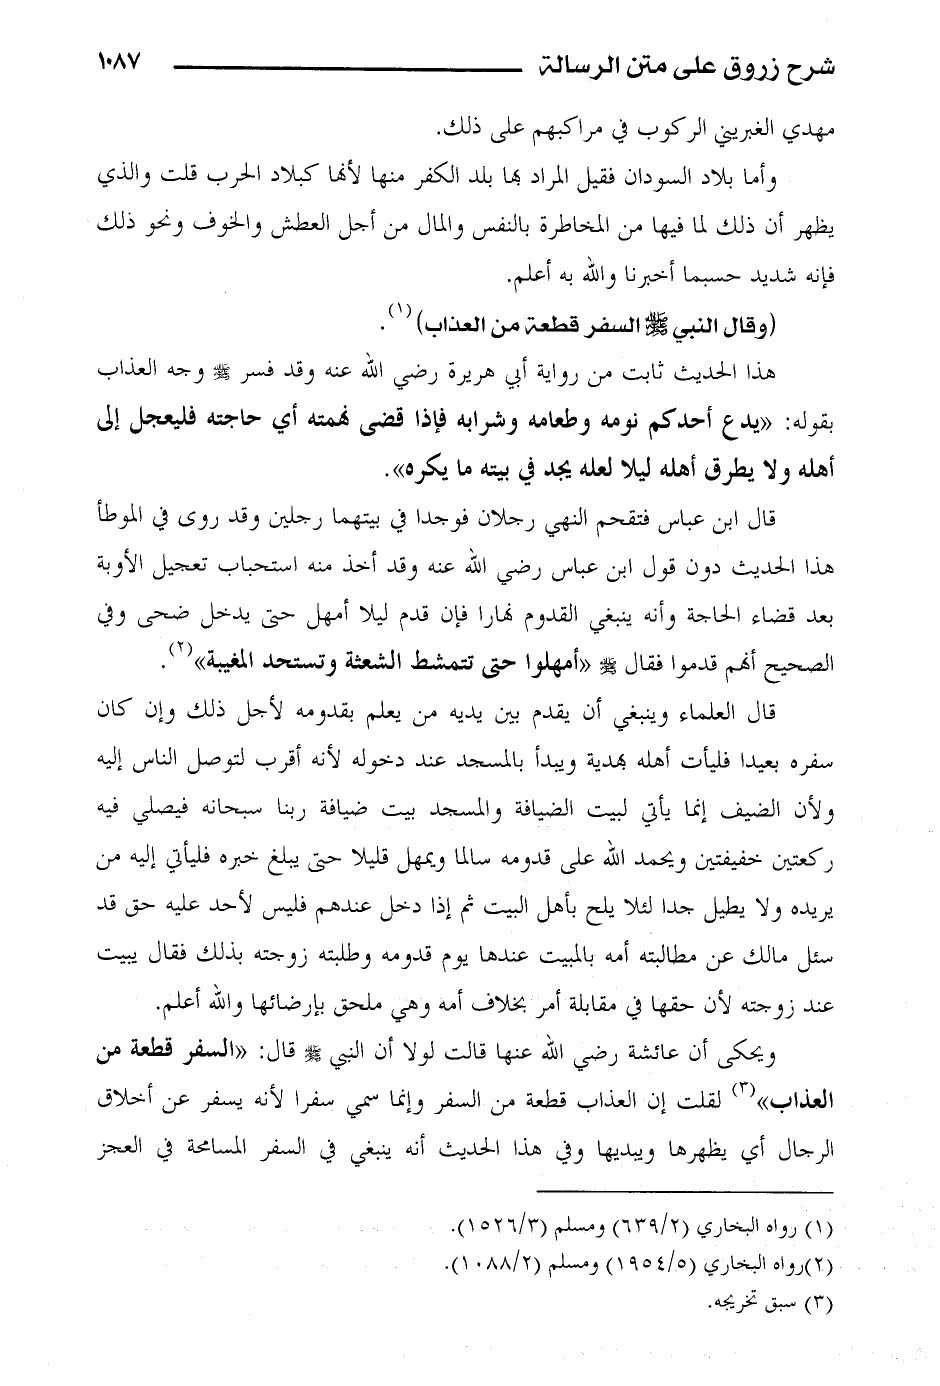 شرح زروق على متن الرسالة ١٠٨٧
مهدي الغبريني الركوب في مراكبهم على ذلك.
وأما بلاد السودان فقيل المراد بها بلد الكفر منها لأنها كبلاد الحرب قلت والذي
يظهر أن ذلك لما فيها من المخاطرة بالنفس والمال من أجل العطش والخوف ونحو ذلك
فإنه شديد حسبما أخبرنا والله به أعلم.
(وقال النبي ﷺ السفر قطعة من العذاب)(١).
هذا الحديث ثابت من رواية أبي هريرة رضي الله عنه وقد فسر ﷺ وجه العذاب
بقوله: «يدع أحدكم نومه وطعامه وشرابه فإذا قضى نهمته أي حاجته فليعجل إلى
أهله ولا يطرق أهله ليلا لعله يجد في بيته ما يكره».
قال ابن عباس فتقحم النهي رجلان فوجدا في بيتهما رجلين وقد روى في الموطأ
هذا الحديث دون قول ابن عباس رضي الله عنه وقد أخذ منه استحباب تعجيل الأوبة
بعد قضاء الحاجة وأنه ينبغي القدوم نهارا فإن قدم ليلا أمهل حتى يدخل ضحى وفي
الصحيح أنهم قدموا فقال ﷺ «أمهلوا حتى تتمشط الشعثة وتستحد المغيبة»(٢).
قال العلماء وينبغي أن يقدم بين يديه من يعلم بقدومه لأجل ذلك وإن كان
سفره بعيدا فليأت أهله بهدية ويبدأ بالمسجد عند دخوله لأنه أقرب لتوصل الناس إليه
ولأن الضيف إنما يأتي لبيت الضيافة والمسجد بيت ضيافة ربنا سبحانه فيصلي فيه
ركعتين خفيفتين ويحمد الله على قدومه سالما ويمهل قليلا حتى يبلغ خبره فليأتي إليه من
يريده ولا يطيل جدا لئلا يلح بأهل البيت ثم إذا دخل عندهم فليس لأحد عليه حق قد
سئل مالك عن مطالبته أمه بالمبيت عندها يوم قدومه وطلبته زوجته بذلك فقال يبيت
عند زوجته لأن حقها في مقابلة أمر بخلاف أمه وهي ملحق بإرضائها والله أعلم.
ويحكى أن عائشة رضي الله عنها قالت لولا أن النبي ﷺ قال: «السفر قطعة من
العذاب»(٣) لقلت إن العذاب قطعة من السفر وإنما سمي سفرا لأنه يسفر عن أخلاق
الرجال أي يظهرها ويبديها وفي هذا الحديث أنه ينبغي في السفر المسامحة في العجز
(١) رواه البخاري (٦٣٩/٢) ومسلم (١٥٢٦/٣).
(٢)رواه البخاري (١٩٥٤/٥) ومسلم (١٠٨٨/٢).
(٣) سبق تخريجه.